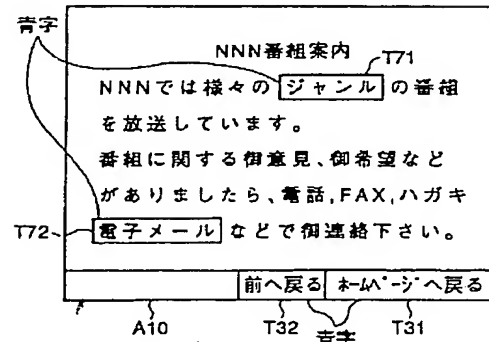 青字
NNN番組案内
T71
NNNでは様々のジャンルの番組
を放送しています。
番組に関する御意見、御希望など
がありましたら、電話,FAX,ハガキ
T72
電子メールなどで御連絡下さい。
前へ戻る ホームページへ戻る
A10 T32 青字 T31